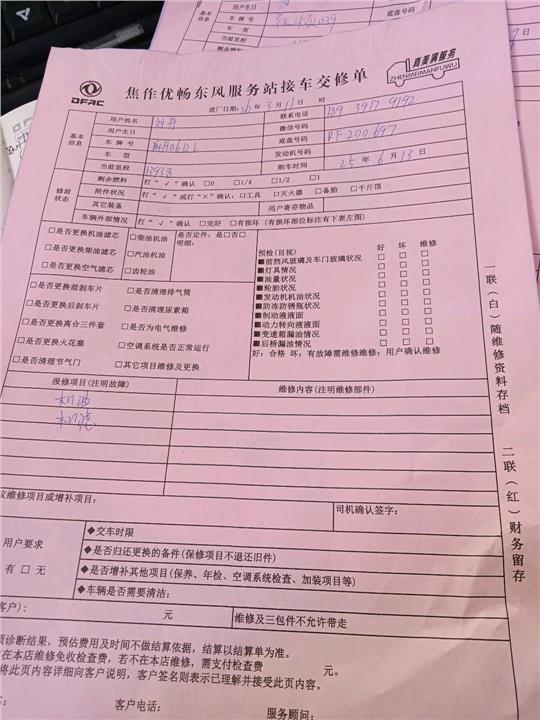 DFAC
焦作优畅东风服务站接车交修单
真美满服务
ZHENMEIMANFUWU
进厂日期: 26 年 3 月 11 日 时
基本信息
用户姓名
联系电话 189 3917 9192
用户生日
微信号码
车牌号
底盘号码 RF200697
车型
发动机号码
当前里程 13938
购车时间 25 年 6 月 13 日
修前状态
剩余燃料 打“√”确认 □0 □1/4 □1/2 □1
附件状况 打“√”或打“×”确认: □工具 □灭火器 □备胎 □千斤顶
其它装备
用户寄存物品
车辆外部情况 打“√”确认 □完好 □有损坏 (有损坏部位标注有下表左图)
□是否更换机油滤芯
□是否更换柴油滤芯
□是否更换空气滤芯
□柴油机油
□汽油机油
□齿轮油
是否定件: 是□否□
明细:
□是否更换前刹车片
□是否更换后刹车片
□是否更换离合三件套
□是否更换火花塞
□是否清理节气门
□是否清理排气筒
□是否清理尿素箱
□是否为电气维修
□空调系统是否正常运行
□其它项目维修及更换
预检(目视) 好 坏 维修
■前挡风玻璃及车门玻璃状况 □ □ □
■灯具情况 □ □ □
■油量状况 □ □ □
■轮胎状况 □ □ □
■发动机机油状况 □ □ □
■防冻防锈瓶状况 □ □ □
■制动液液面 □ □ □
■动力转向液液面 □ □ □
■变速箱漏油情况 □ □ □
■后桥漏油情况 □ □ □
好: 合格 坏: 有故障需维修维修: 用户确认维修
报修项目(注明故障)
维修内容(注明维修部件)
机油
机滤
议维修项目或增补项目:
司机确认签字:
用户要求
有 □ 无
◆交车时限
◆是否归还更换的备件(保修项目不退还旧件)
◆是否增补其他项目(保养、年检、空调系统检查、加装项目等)
◆车辆是否需要清洁:
客户): 元
维修及三包件不允许带走
预诊断结果, 预估费用及时间不做结算依据, 结算以结算单为准。
在本店维修免收检查费, 若不在本店维修, 需支付检查费 元。
将此页内容详细向客户说明, 客户签名则表示已理解并接受此页内容。
客户电话:
服务顾问:
一联(白)随维修资料存档
二联(红)财务留存